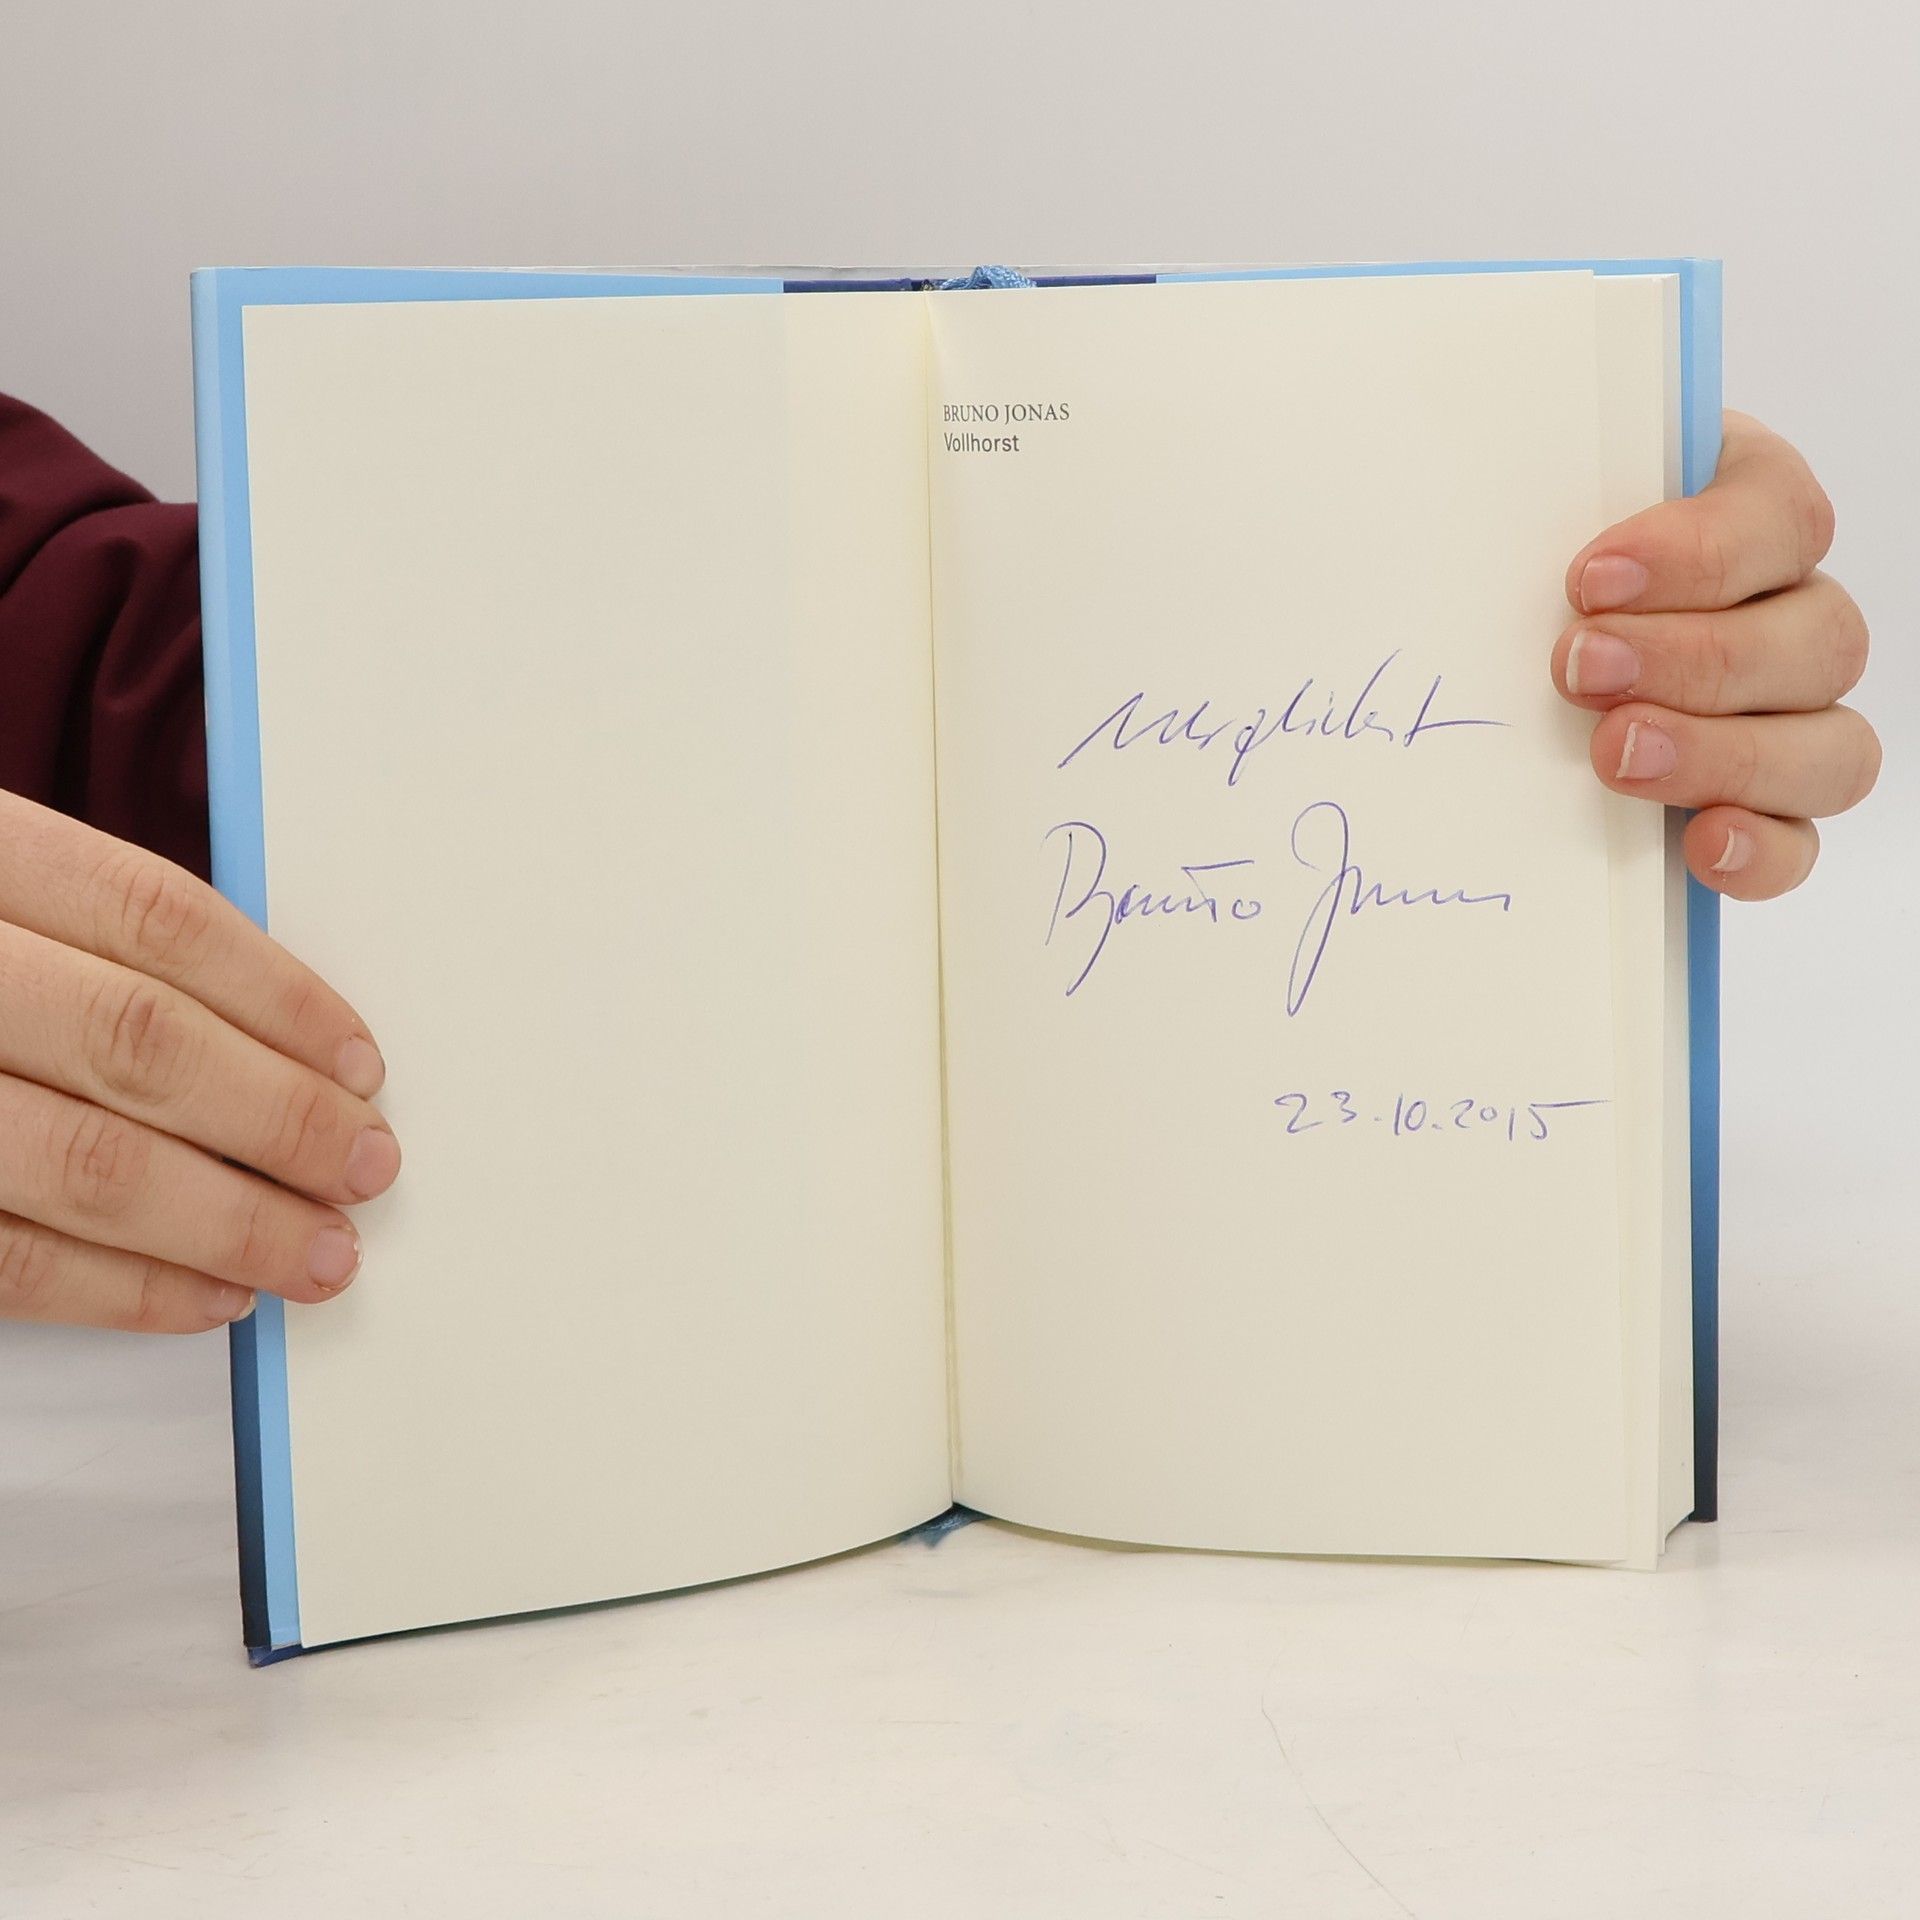 BRUNO JONAS
Vollhorst
herzlichst
Bruno Jonas
23.10.2015